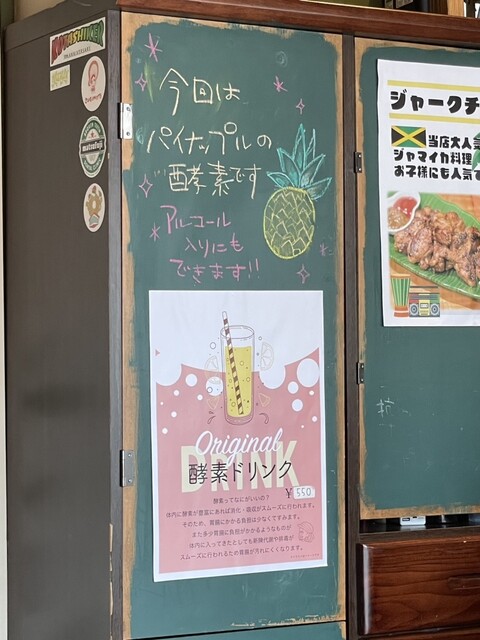 今回は
パイナップルの
酵素です
アルコール
入りにも
できます!!
Original
DRINK
酵素ドリンク
¥550
酵素ってなにがいいの？
体内に酵素が豊富にあれば消化・吸収がスムーズに行われます。
そのため、胃腸にかかる負担は少なくてすみます。
また多少胃腸に負担がかかるようなものが
体内に入ってきたとしても新陳代謝や排毒が
スムーズに行われるため胃腸が汚れにくくなります。
ジャークチ
当店大人気
ジャマイカ料理
お子様にも人気で